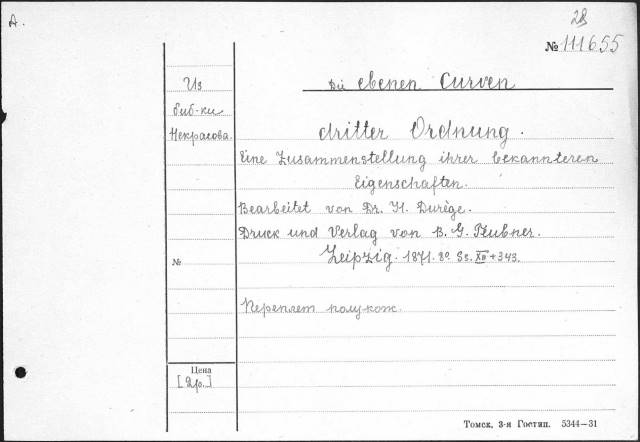 A.
28
№ 111655
Из
биб-ки
Некрасова.
Die ebenen Curven
dritter Ordnung.
Eine Zusammenstellung ihrer bekannteren
Eigenschaften.
Bearbeitet von Dr. H. Durège.
Druck und Verlag von B. G. Teubner.
Leipzig. 1871. 8º. Ss. XII + 343.
№
Переплет полукож.
Цена
[2р.]
Томск, 3-я Гостип. 5344—31